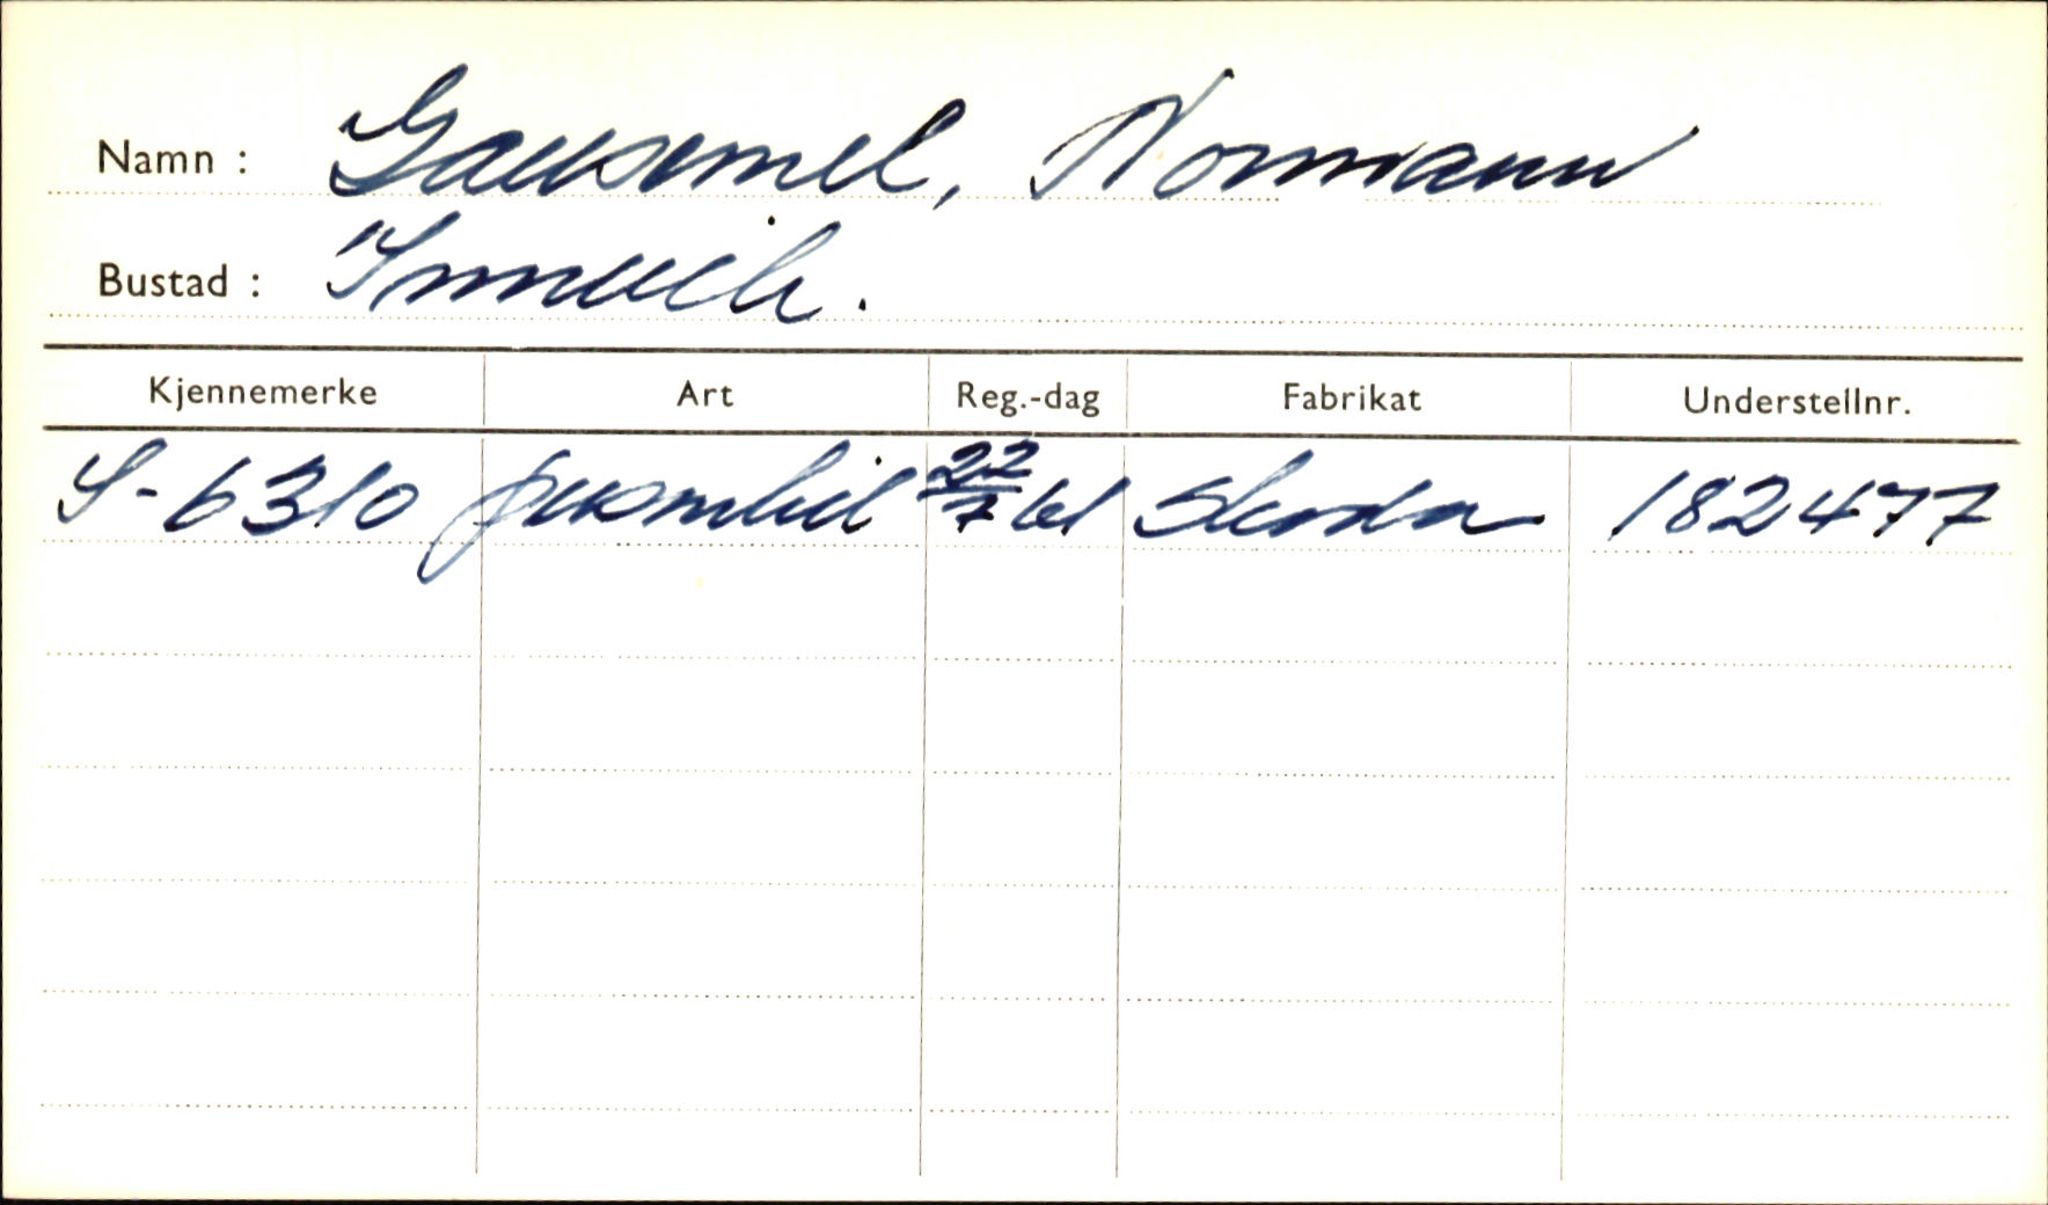 Namn : Gausemel, Normann
Bustad : Innvik.
Kjennemerke Art Reg.-dag Fabrikat Understellnr.
S-6310 personbil 22/7 61 Skoda 182477